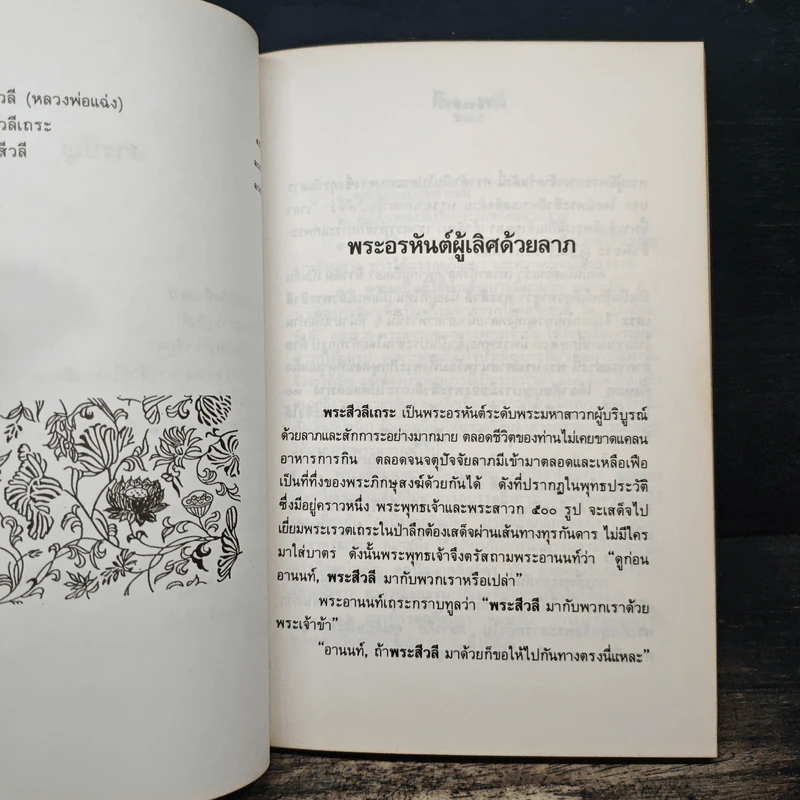 วลี (หลวงพ่อแฉ่ง)
วลีเถระ
สีวลี
พระอรหันต์ผู้เลิศด้วยลาภ
พระสีวลีเถระ เป็นพระอรหันต์ระดับพระมหาสาวกผู้บริบูรณ์
ด้วยลาภและสักการะอย่างมากมาย ตลอดชีวิตของท่านไม่เคยขาดแคลน
อาหารการกิน ตลอดจนจตุปัจจัยลาภมีเข้ามาตลอดและเหลือเฟือ
เป็นที่พึ่งของพระภิกษุสงฆ์ด้วยกันได้ ดังที่ปรากฏในพุทธประวัติ
ซึ่งมีอยู่คราวหนึ่ง พระพุทธเจ้าและพระสาวก ๕๐๐ รูป จะเสด็จไป
เยี่ยมพระเรวตเถระในป่าลึกต้องเสด็จผ่านเส้นทางทุรกันดาร ไม่มีใคร
มาใส่บาตร ดังนั้นพระพุทธเจ้าจึงตรัสถามพระอานนท์ว่า “ดูก่อน
อานนท์, พระสีวลี มากับพวกเราหรือเปล่า”
พระอานนท์เถระกราบทูลว่า “พระสีวลี มากับพวกเราด้วย
พระเจ้าข้า”
“อานนท์, ถ้าพระสีวลี มาด้วยก็ขอให้ไปกันทางตรงนี่แหละ”